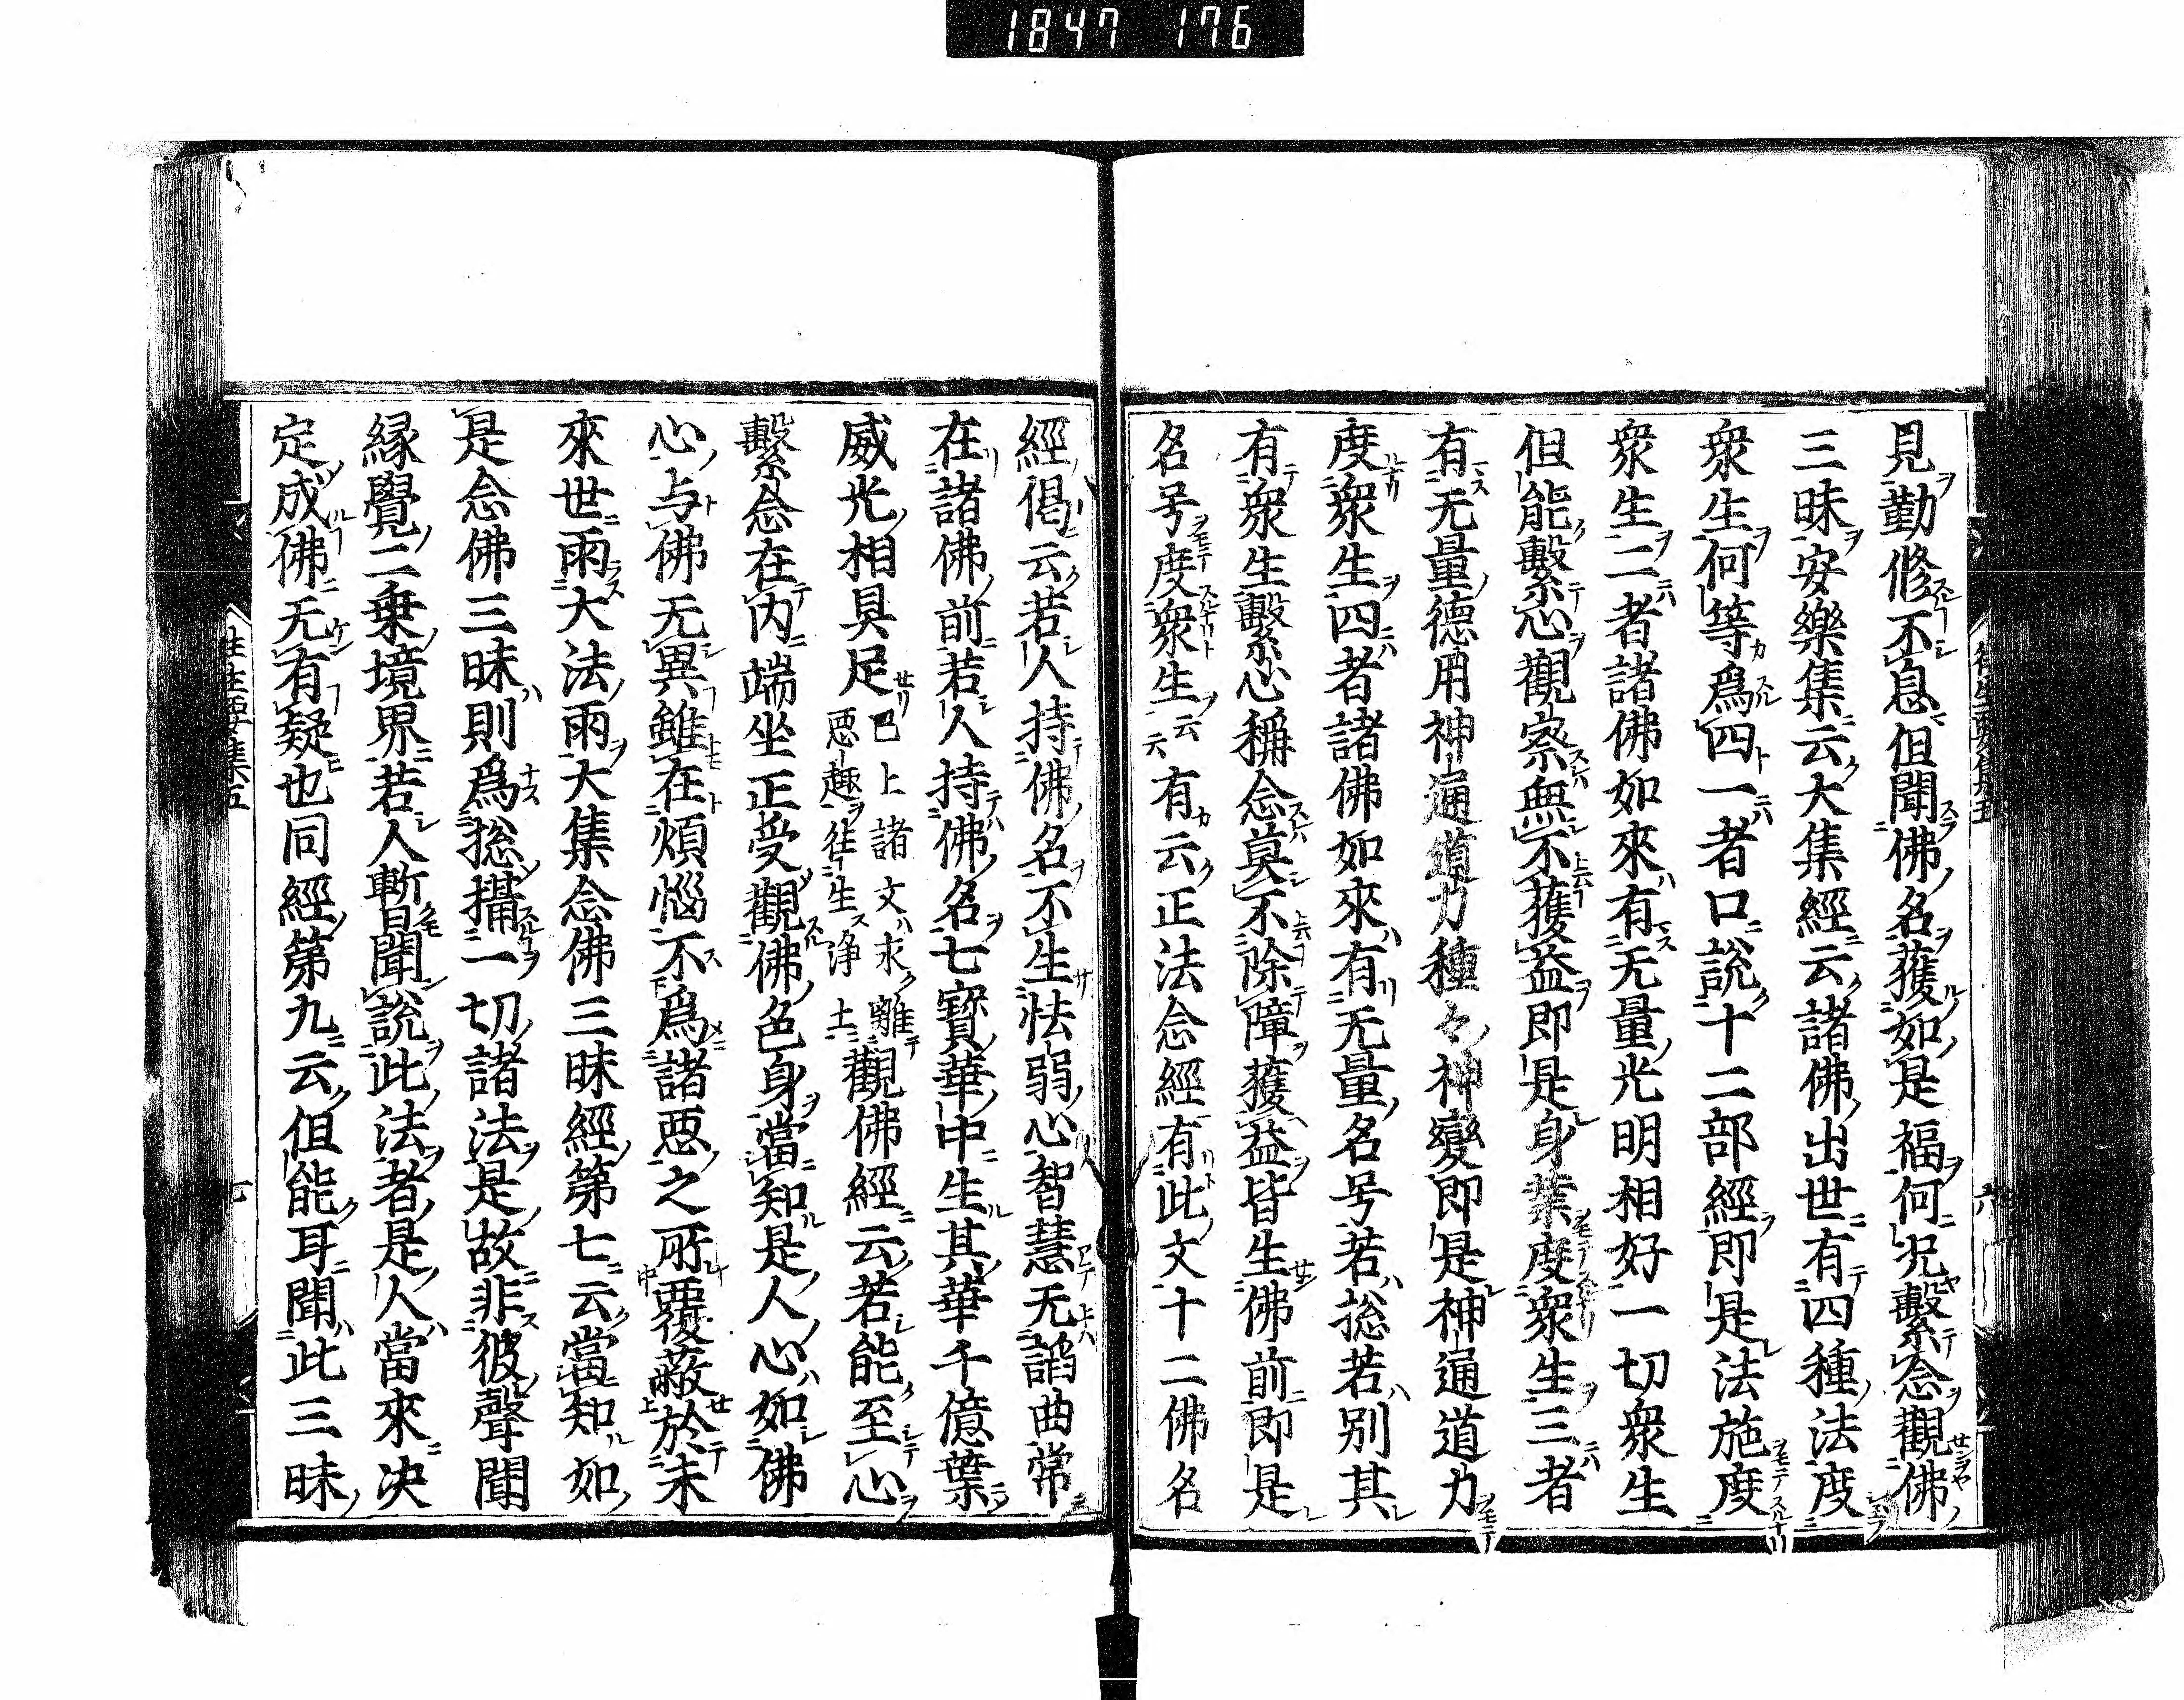 1847 176
見勤修不息但聞佛名獲如是福何况繫念觀佛
三昧安樂集云大集經云諸佛出世有四種法度
衆生何等爲四一者口說十二部經即是法施度
衆生二者諸佛如來有无量光明相好一切衆生
但能繫心觀察無不獲益即是身業度衆生三者
有无量德用神通道力種々神變即是神通道力
度衆生四者諸佛如來有无量名号若捴若别其
有衆生繫心稱念莫不除障獲益皆生佛前即是
名号度衆生云云有云正法念經有此文十二佛名
經偈云若人持佛名不生怯弱心智慧无謟曲常
在諸佛前若人持佛名七寳華中生其華千億葉
威光相具足巳上諸文求離惡趣往生淨土觀佛經云若能至心
繫念在内端坐正受觀佛色身當知是人心如佛
心与佛无異雖在煩惱不爲諸惡之所覆蔽於未
來世雨大法雨大集念佛三昧經第七云當知如
是念佛三昧則爲捴攝一切諸法是故非彼聲聞
緣覺二乗境界若人暫聞說此法者是人當來决
定成佛无有疑也同經第九云但能耳聞此三昧
往生要集五
七